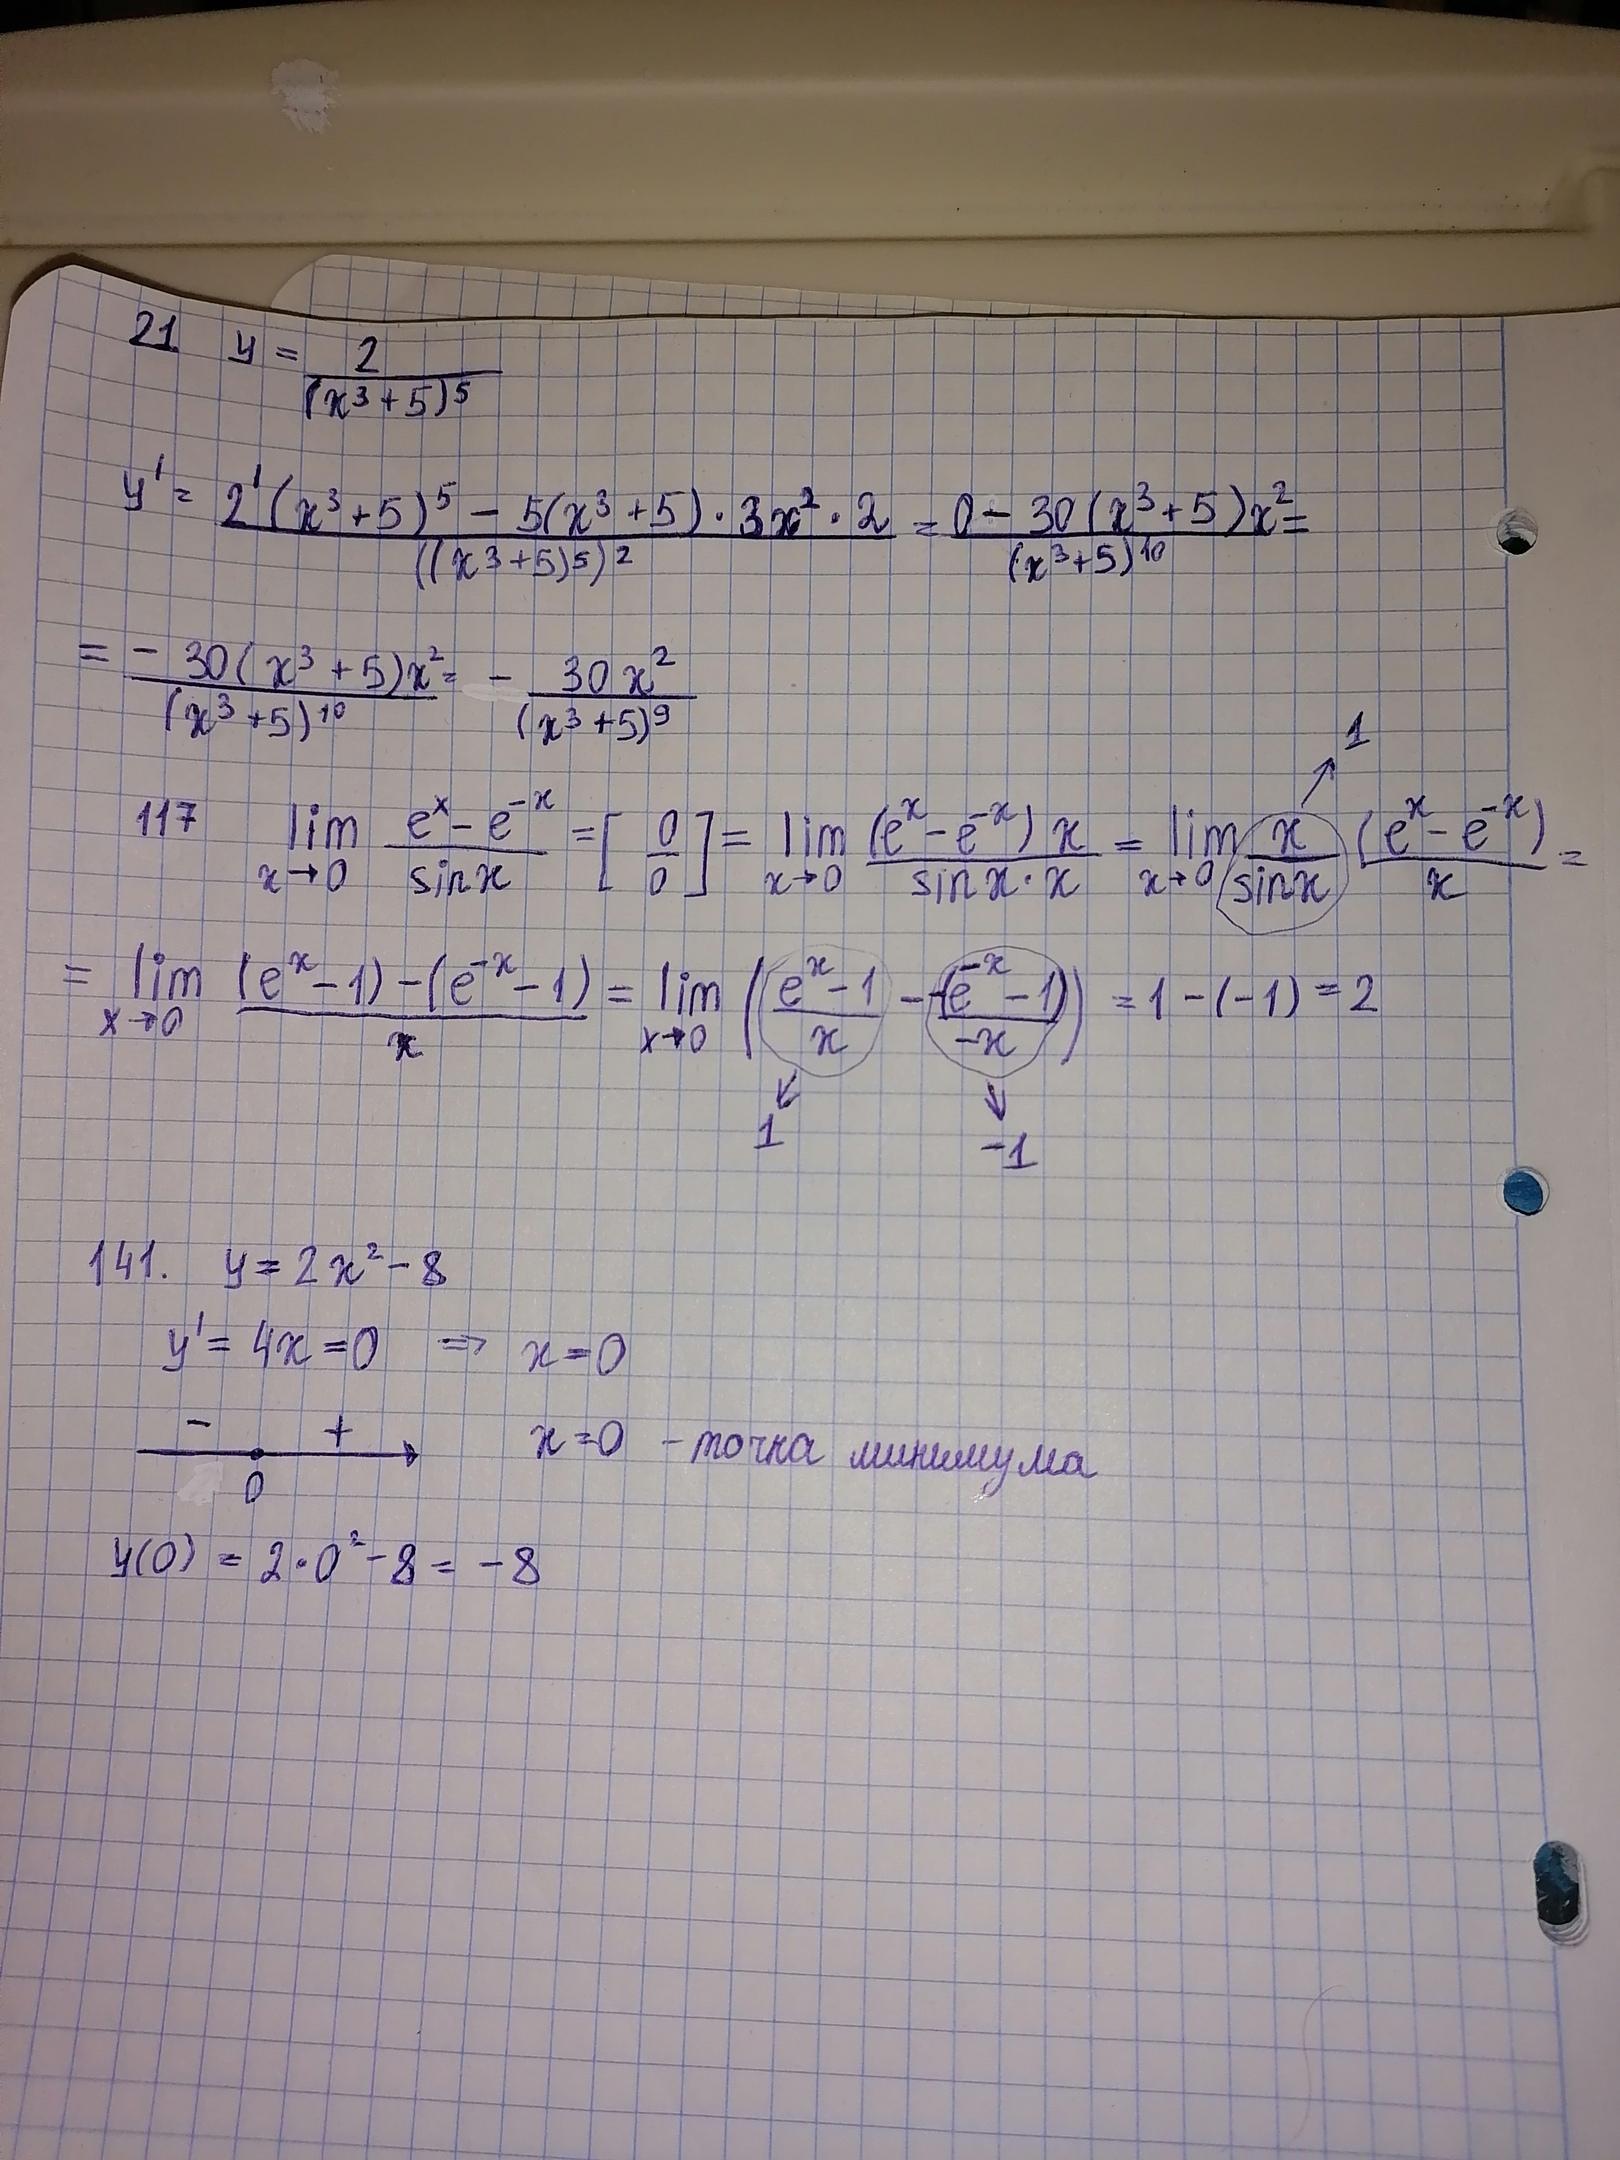 21 y = 2/(x³+5)⁵
y' = (2'(x³+5)⁵ - 5(x³+5)·3x²·2)/((x³+5)⁵)² = (0 - 30(x³+5)x²)/(x³+5)¹⁰ =
= (-30(x³+5)x²)/(x³+5)¹⁰ = - 30x²/(x³+5)⁹
1
117 lim x→0 (eˣ - e⁻ˣ)/sinx = [0/0] = lim x→0 ((eˣ - e⁻ˣ)x)/(sinx·x) = lim x→0 x/sinx (eˣ - e⁻ˣ)/x =
= lim x→0 ((eˣ-1)-(e⁻ˣ-1))/x = lim x→0 ((eˣ-1)/x - -(e⁻ˣ-1)/-x) = 1-(-1) = 2
1 -1
141. y = 2x²-8
y' = 4x = 0 => x = 0
- + x=0 - точка минимума
0
y(0) = 2·0²-8 = -8